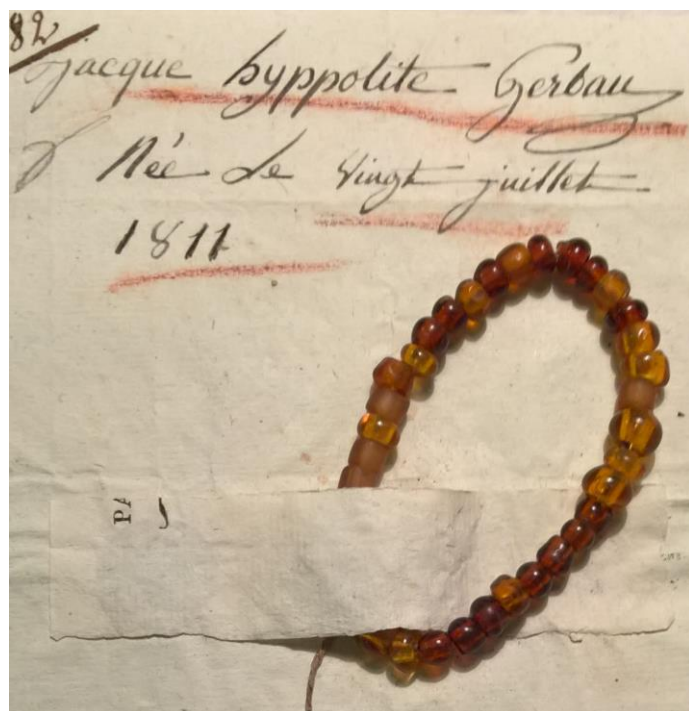 82
jacque hyppolite Gerbau
Née Le vingt juillet
1811
PA